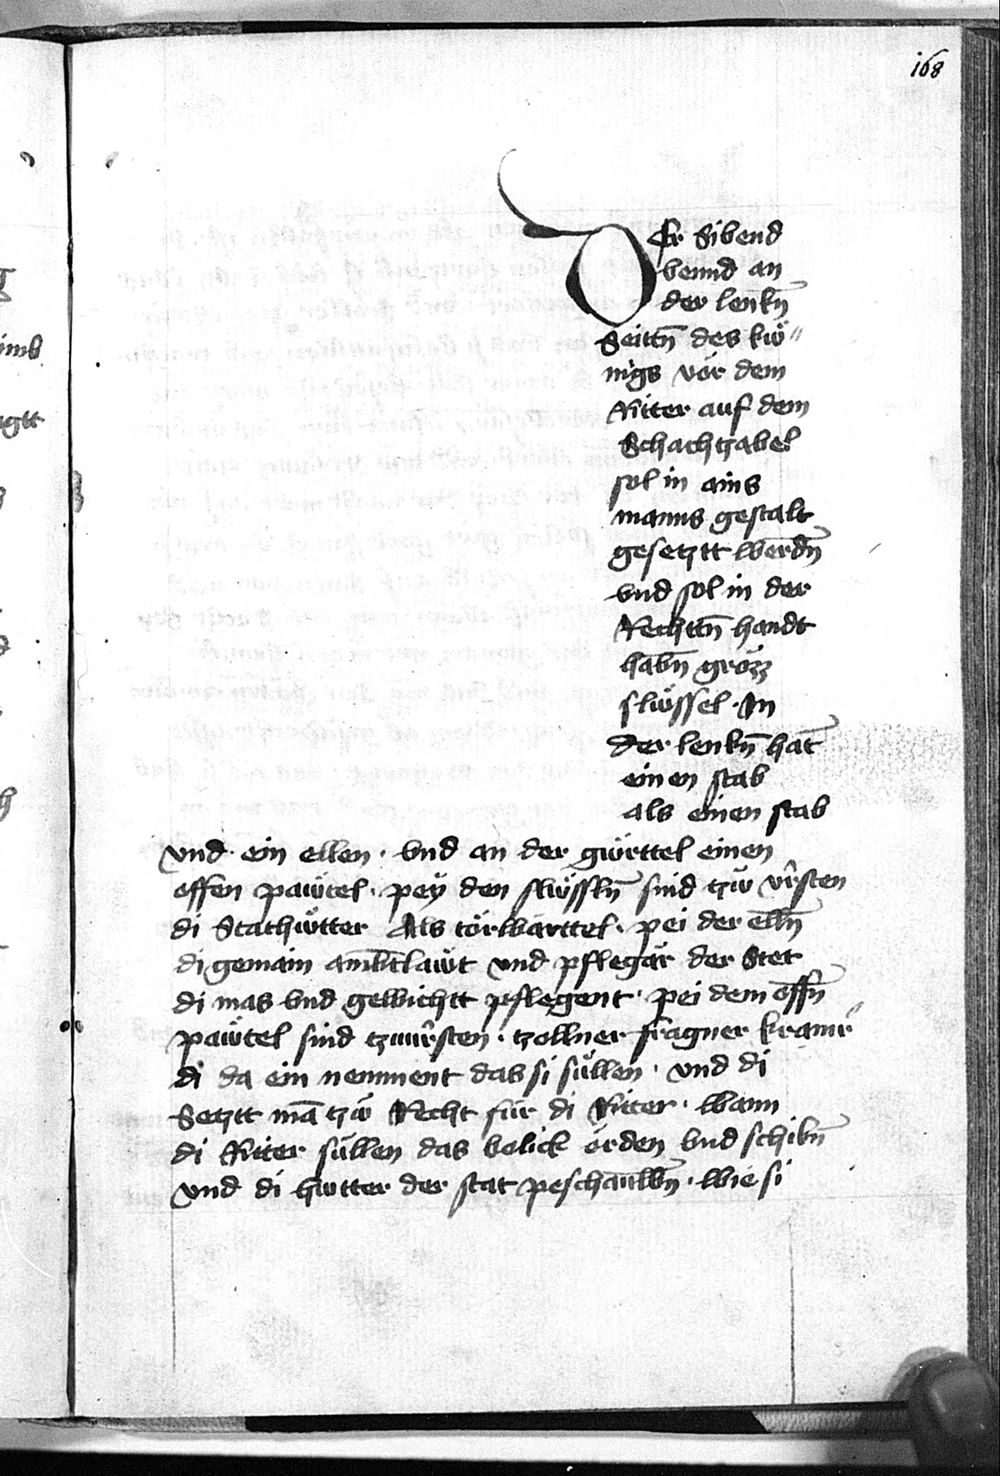 168
Der Sibend
vennd an
der lenkn̄
Seittn̄ des kuͤ〃
nigs vor dem
Ritter auf dem
Schachtzabel
sol in ains
manns gestalt
gesetztt werdn̄
vnd sol in der
Rechttn̄ handt
habn̄ grözz
slüssel · In
der lenkn̄ hat
einen stab
als einen stab
vnd ein ellen · vnd an der gürttel einen
offen pawtel · pey den slüssln̄ sind tzw vrsten
di Stathütter Als törwarttel · pei der elln̄
di gemain ambtlawt vnd pfleger der Stet
di mas vnd gewichtt pflegent · pei dem offn̄
pawtel sind tzwursten · tzollner fragner kramer
di da ein nemment das si süllen · vnd di
Setztt mā tzw Recht für di Ritter · wann
di Ritter süllen das volick orden vnd schikn̄
vnd di hutter der stat peschawn̄ · wie si
imb
agtt